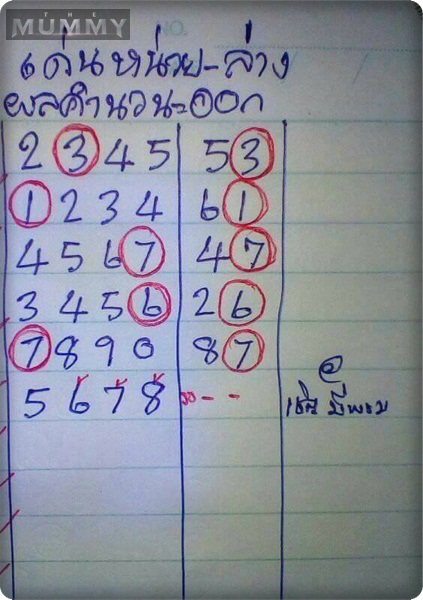 THE
MUMMY
NO.
เด่นหน่วย-ล่าง
ผลคำนวน=ออก
2 3 4 5 53
1 2 3 4 61
4 5 6 7 47
3 4 5 6 26
7 8 9 0 87
5 6 7 8 - -